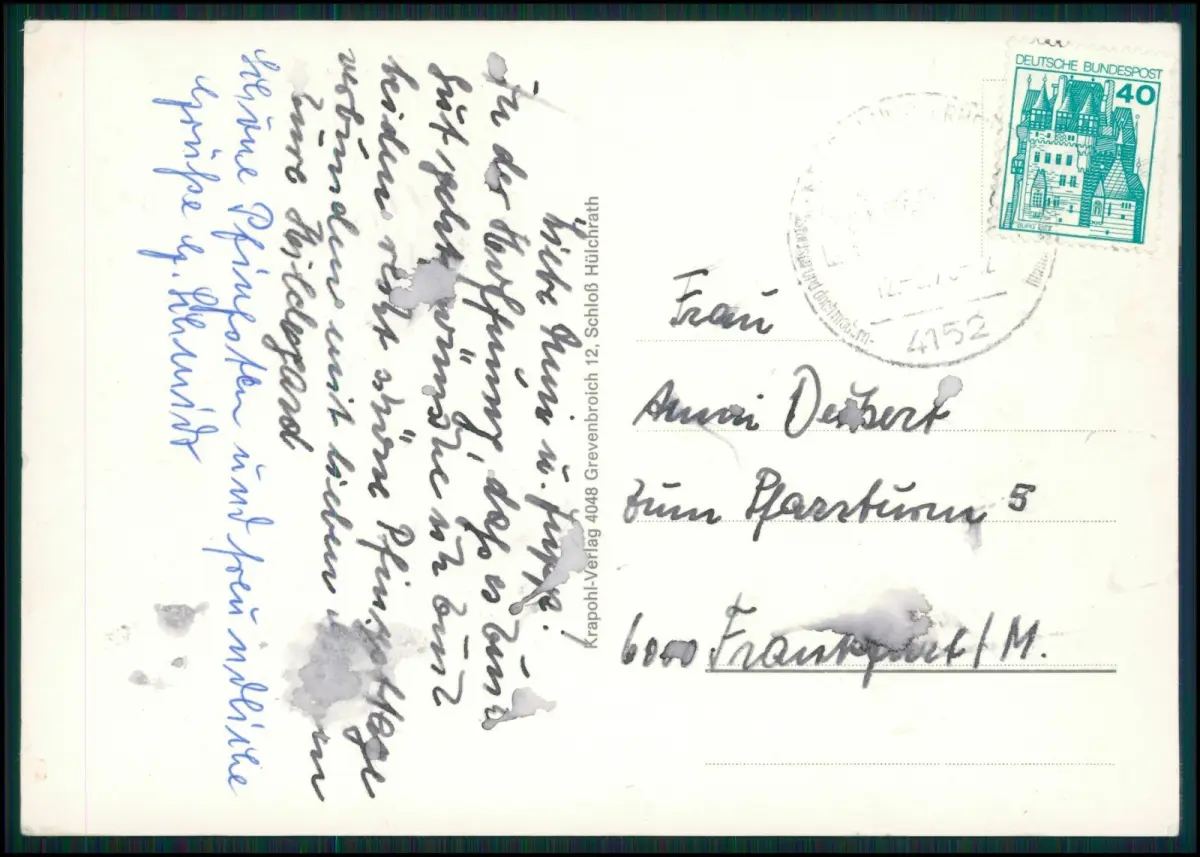 Liebe Änni u. Jupp!
In der Hoffnung, daß es Euch
gut geht, wünsche ich Euch
beiden recht schöne Pfingsttage
verbunden mit lieben
Eure Hildegard
Schöne Pfingsten und freundliche
Grüße Schmidt
Krapohl-Verlag 4048 Grevenbroich 12, Schloß Hülchrath
DEUTSCHE BUNDESPOST
40
BURG ELTZ
4152
Frau
Anni
Zum Pfarrturm 5
6000 Frankfurt/M.